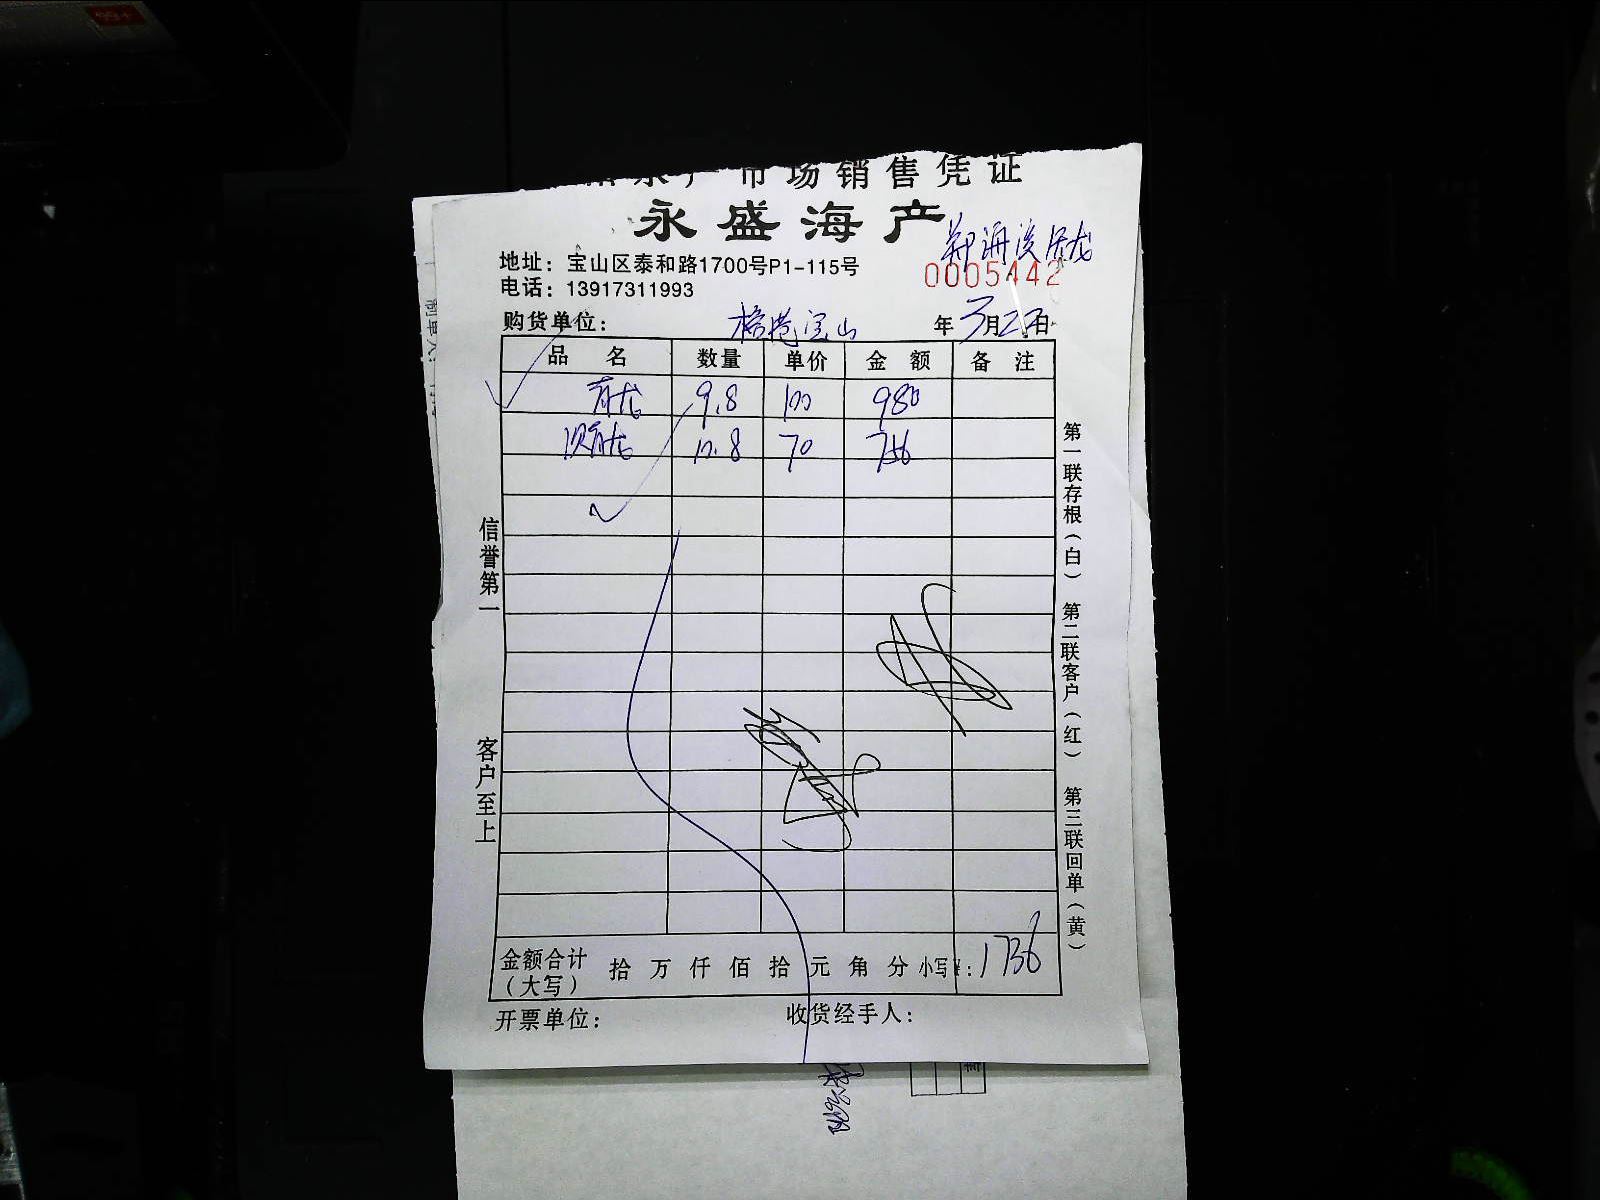 市场销售凭证
永盛海产
地址：宝山区泰和路1700号P1-115号
0005442
电话：13917311993
购货单位：
宝山
年 3月 日
品 名 数量 单价 金 额 备 注
青龙 9.8 100 980
青龙 10.8 70 756
信誉第一
客户至上
第一联存根（白） 第二联客户（红） 第三联回单（黄）
金额合计（大写） 拾 万 仟 佰 拾 元 角 分 小写¥：1736
开票单位：
收货经手人：
99+